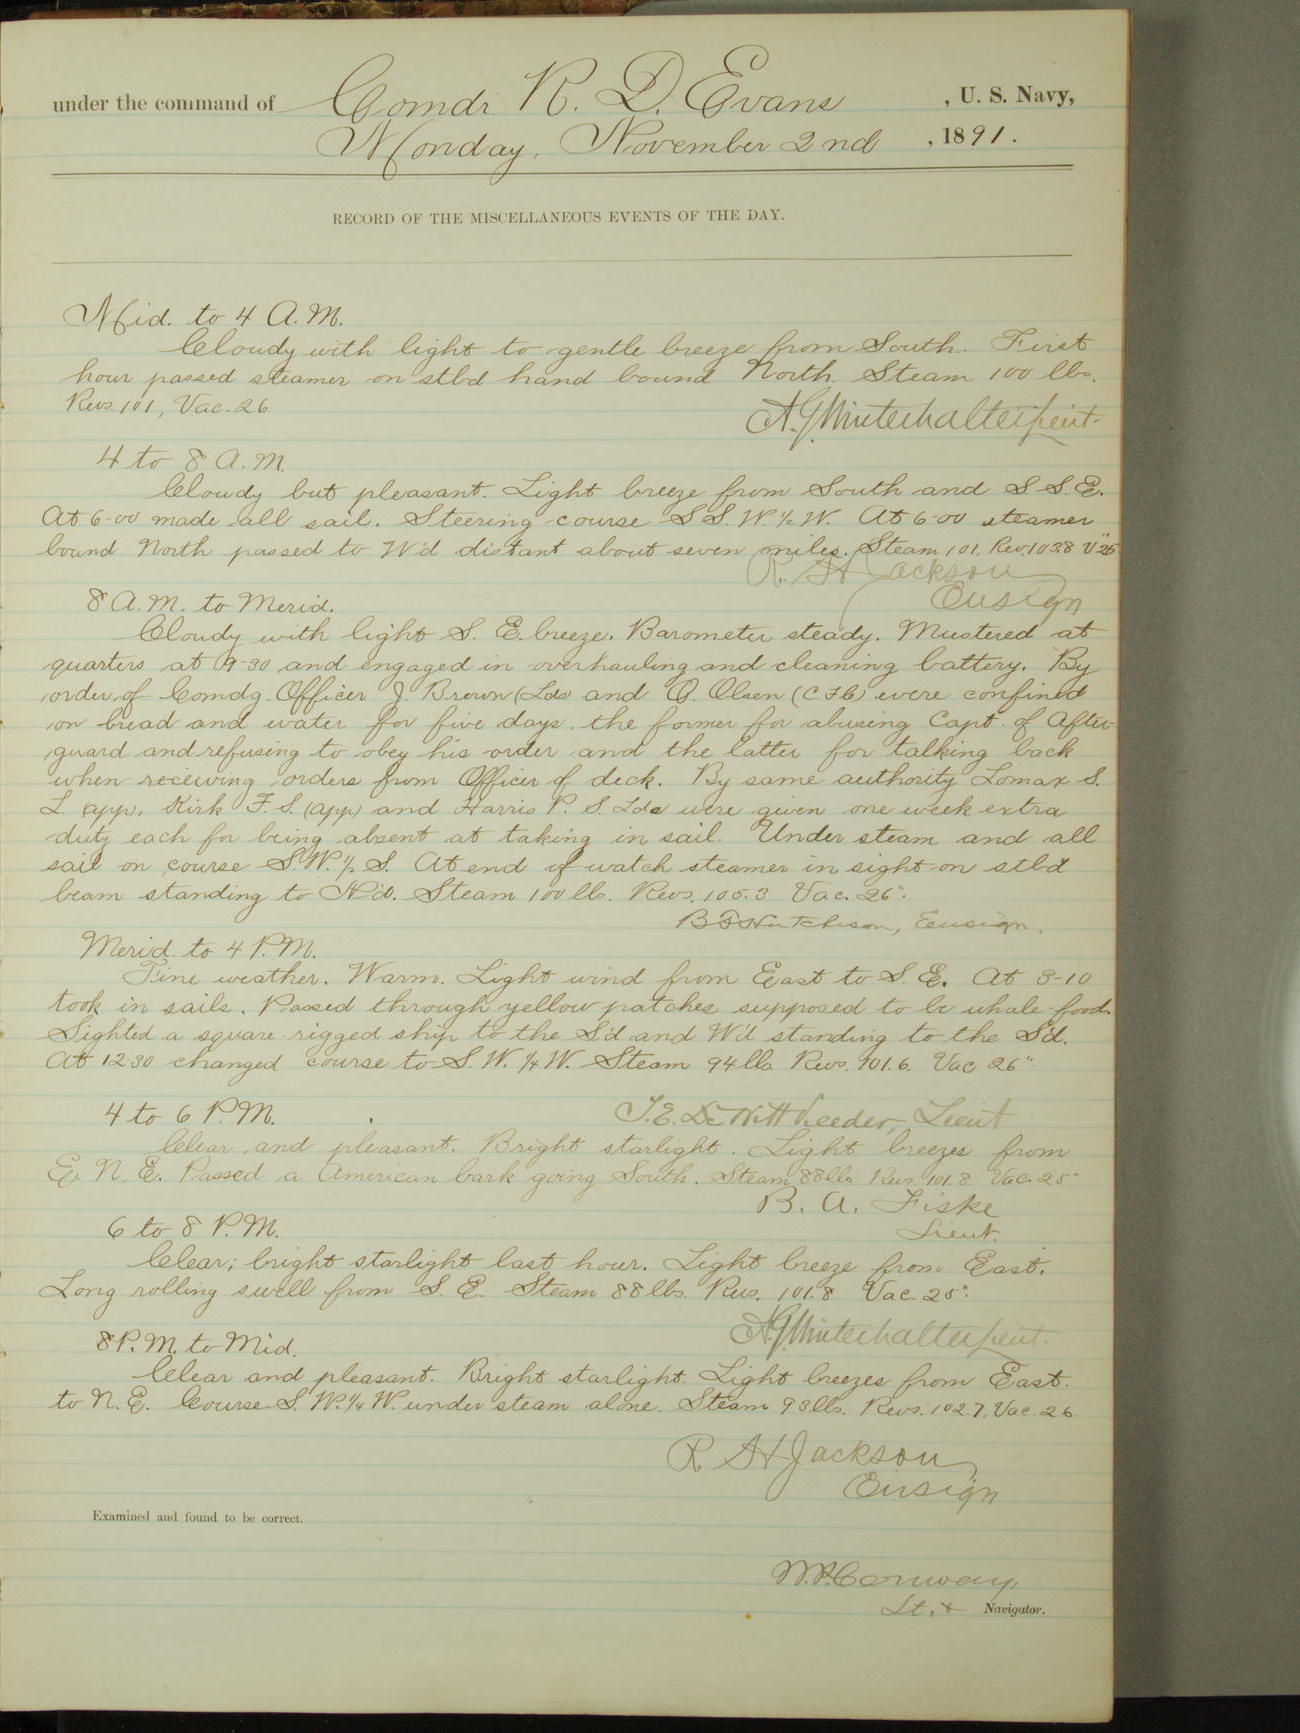 under the command of Comdr. R. D. Evans , U. S. Navy,
Monday, November 2nd , 1891.
RECORD OF THE MISCELLANEOUS EVENTS OF THE DAY.
Mid. to 4 A.M.
Cloudy with light to gentle breeze from South. First
hour passed steamer on stbd hand bound North. Steam 100 lbs.
Revs. 101, Vac. 26
A.G. Winterhalter Lieut.
4 to 8 A.M.
Cloudy but pleasant. Light breeze from South and S.S.E.
At 6-00 made all sail. Steering course S.S.W. ½ W. At 6-00 steamer
bound North passed to W'd distant about seven miles. Steam 101. Rev. 103.8 V. 25"
R. H. Jackson
Ensign
8 A.M. to Merid.
Cloudy with light S. E. breeze. Barometer steady. Mustered at
quarters at 9-30 and engaged in overhauling and cleaning battery. By
order of Comdg. Officer J. Brown (Lds) and O. Olsen (C.F.C.) were confined
on bread and water for five days, the former for abusing Capt. of After-
guard and refusing to obey his order and the latter for talking back
when receiving orders from Officer of deck. By same authority Lomax S.
L. app, Kirk F. S. (app) and Harris P. S. Lds were given one week extra
duty each for being absent at taking in sail. Under steam and all
sail on course S.W. ½ S. At end of watch steamer in sight on stbd
beam standing to N'd. Steam 100 lb. Revs. 105.3 Vac. 26".
B F Hutchison, Ensign.
Merid. to 4 P.M.
Fine weather. Warm. Light wind from East to S. E. At 3-10
took in sails. Passed through yellow patches supposed to be whale-food.
Sighted a square-rigged ship to the S'd and W'd standing to the S'd.
At 12 30 changed course to S. W. ¼ W. Steam 94 lbs. Revs. 101.6. Vac 26"
4 to 6 P.M. T.E. DeWitt Veeder, Lieut
Clear and pleasant. Bright starlight. Light breezes from
E. N. E. Passed a American bark going South. Steam 88 lbs Revs. 101.8 Vac. 25"
B. A. Fiske
Lieut.
6 to 8 P.M.
Clear; bright starlight last hour. Light breeze from East.
Long rolling swell from S. E. Steam 88 lbs. Revs. 101.8 Vac. 25".
A.G. Winterhalter Lieut.
8 P.M. to Mid.
Clear and pleasant. Bright starlight. Light breezes from East.
to N. E. Course S. W. ¼ W. under steam alone. Steam 93 lbs. Revs. 102.7. Vac. 26
R H Jackson
Ensign
Examined and found to be correct.
W.P. Conway,
Lt. & Navigator.